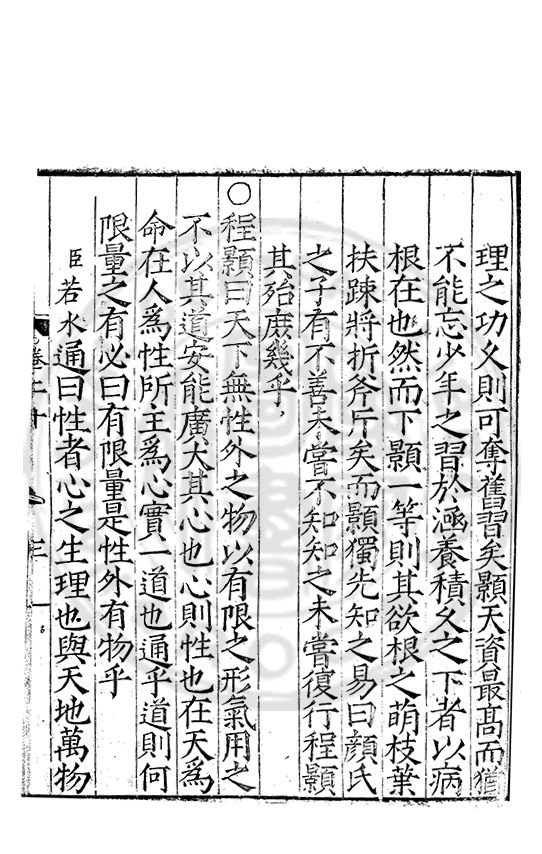 理之功久則可奪舊習矣顥天資最高而猶
不能忘少年之習於涵養積久之下者以病
根在也然而下顥一等則其欲根之萌枝葉
扶疎將折斧斤矣而顥獨先知之易曰顔氏
之子有不善未嘗不知知之未嘗復行程顥
其殆庶幾乎
○程顥曰天下無性外之物以有限之形氣用之
不以其道安能廣大其心也心則性也在天爲
命在人爲性所主爲心實一道也通乎道則何
限量之有必曰有限量是性外有物乎
臣若水通曰性者心之生理也與天地萬物
卷二十 三